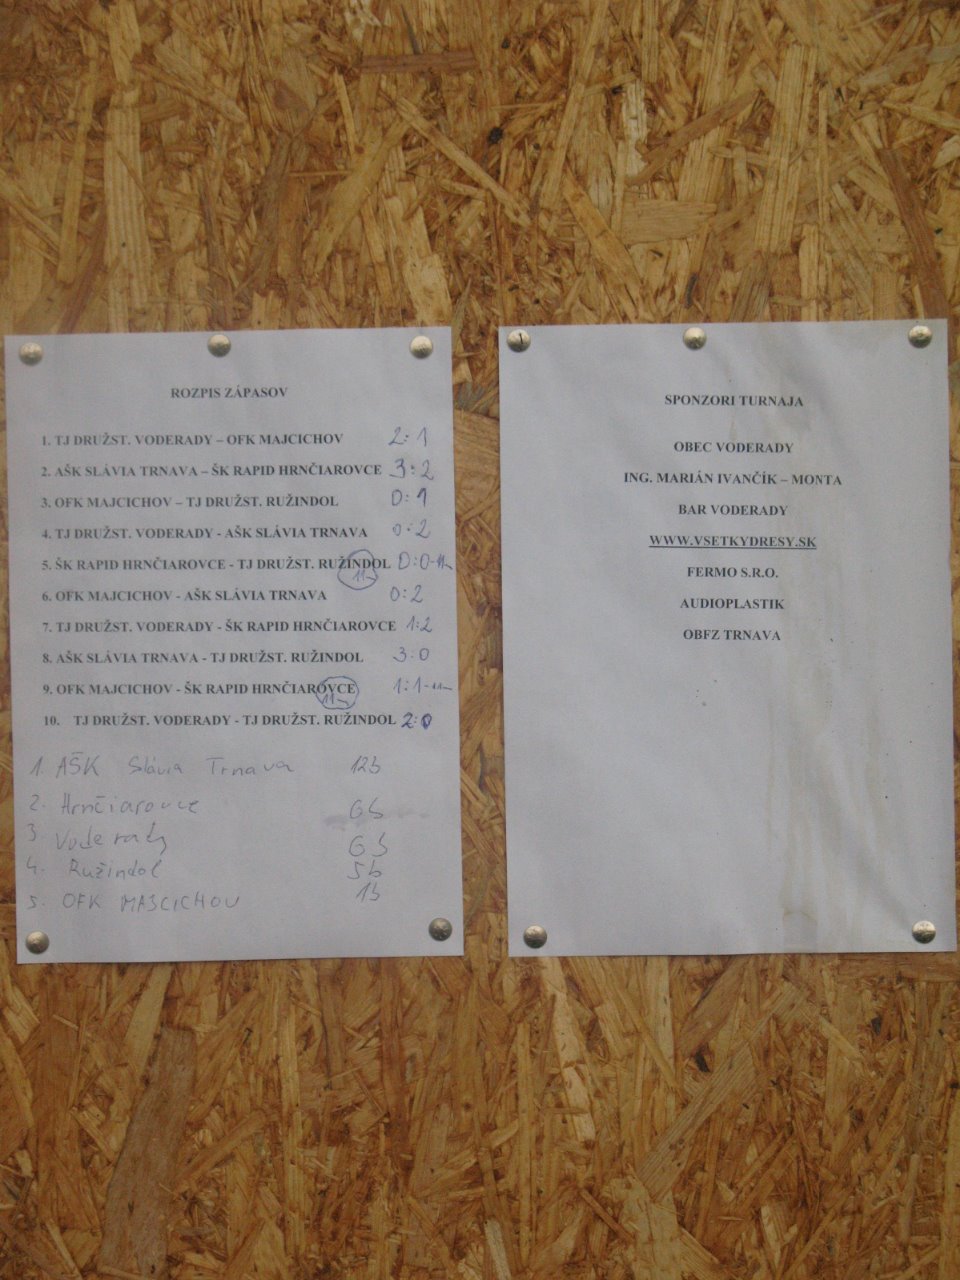 ROZPIS ZÁPASOV
1. TJ DRUŽST. VODERADY – OFK MAJCICHOV 2:1
2. AŠK SLÁVIA TRNAVA – ŠK RAPID HRNČIAROVCE 3:2
3. OFK MAJCICHOV – TJ DRUŽST. RUŽINDOL 0:1
4. TJ DRUŽST. VODERADY - AŠK SLÁVIA TRNAVA 0:2
5. ŠK RAPID HRNČIAROVCE - TJ DRUŽST. RUŽINDOL 0:0-11m
11m
6. OFK MAJCICHOV - AŠK SLÁVIA TRNAVA 0:2
7. TJ DRUŽST. VODERADY - ŠK RAPID HRNČIAROVCE 1:2
8. AŠK SLÁVIA TRNAVA - TJ DRUŽST. RUŽINDOL 3:0
9. OFK MAJCICHOV - ŠK RAPID HRNČIAROVCE 1:1-11m
11m
10. TJ DRUŽST. VODERADY - TJ DRUŽST. RUŽINDOL 2:0
1. AŠK Slávia Trnava 12b
2. Hrnčiarovce 6b
3. Voderady 6b
4. Ružindol 5b
5. OFK MAJCICHOV 1b
SPONZORI TURNAJA
OBEC VODERADY
ING. MARIÁN IVANČÍK – MONTA
BAR VODERADY
WWW.VSETKYDRESY.SK
FERMO S.R.O.
AUDIOPLASTIK
OBFZ TRNAVA